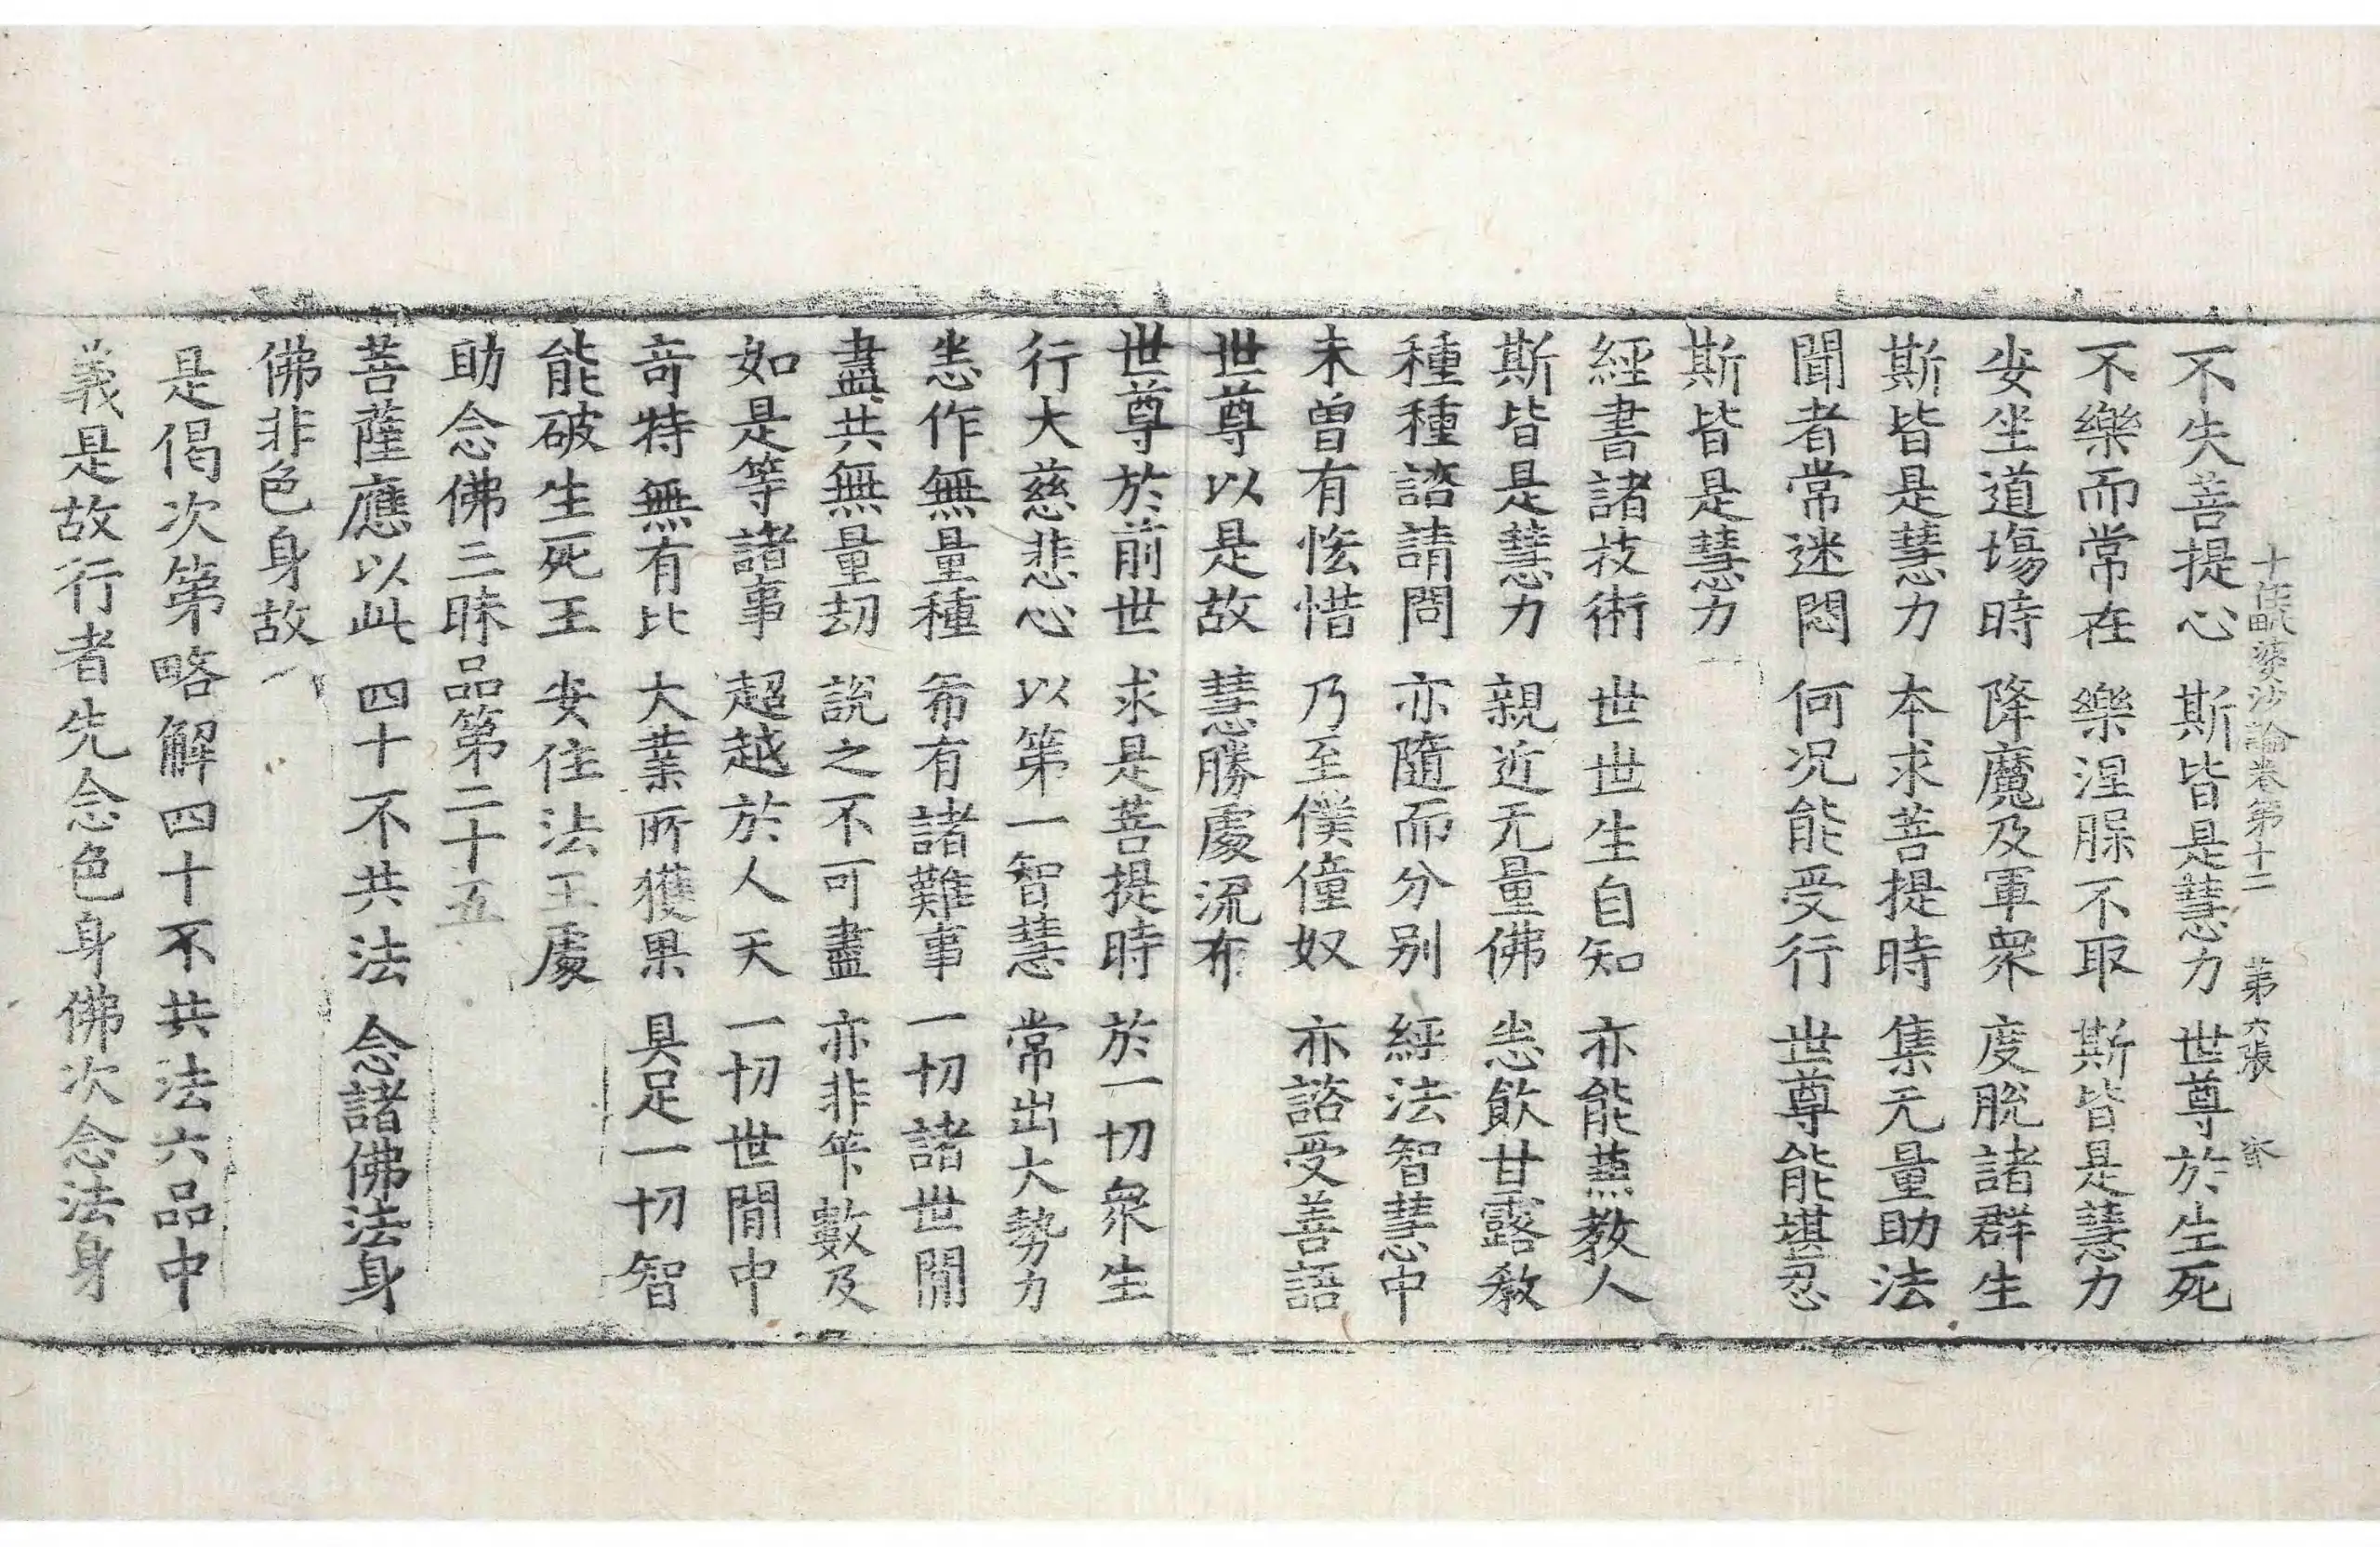 十住毗婆沙論卷第十二 第六張
不失菩提心 斯皆是慧力 世尊於生死
不樂而常在 樂涅脲不取 斯皆是慧力
安坐道場時 降魔及軍衆 度脫諸群生
斯皆是慧力 本求菩提時 集无量助法
聞者常迷悶 何况能受行 世尊能堪忍
斯皆是慧力
經書諸技術 世世生自知 亦能蒸教人
斯皆是慧力 親近无量佛 悉飲甘露教
種種諮請問 亦隨而分别 經法智慧中
未曾有恡惜 乃至僕僮奴 亦諮受善語
世尊以是故 慧勝處流布
世尊於前世 求是菩提時 於一切衆生
行大慈悲心 以第一智慧 常出大勢力
悉作無量種 希有諸難事 一切諸世閒
盡共無量劫 說之不可盡 亦非筭數及
如是等諸事 超越於人天 一切世閒中
奇特無有比 大業所獲果 具足一切智
能破生死王 安住法王處
助念佛三昧品第二十五
菩薩應以此 四十不共法 念諸佛法身
佛非色身故
是偈次第略解四十不共法六品中
義是故行者先念色身佛次念法身